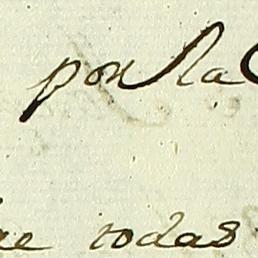 por la
todas